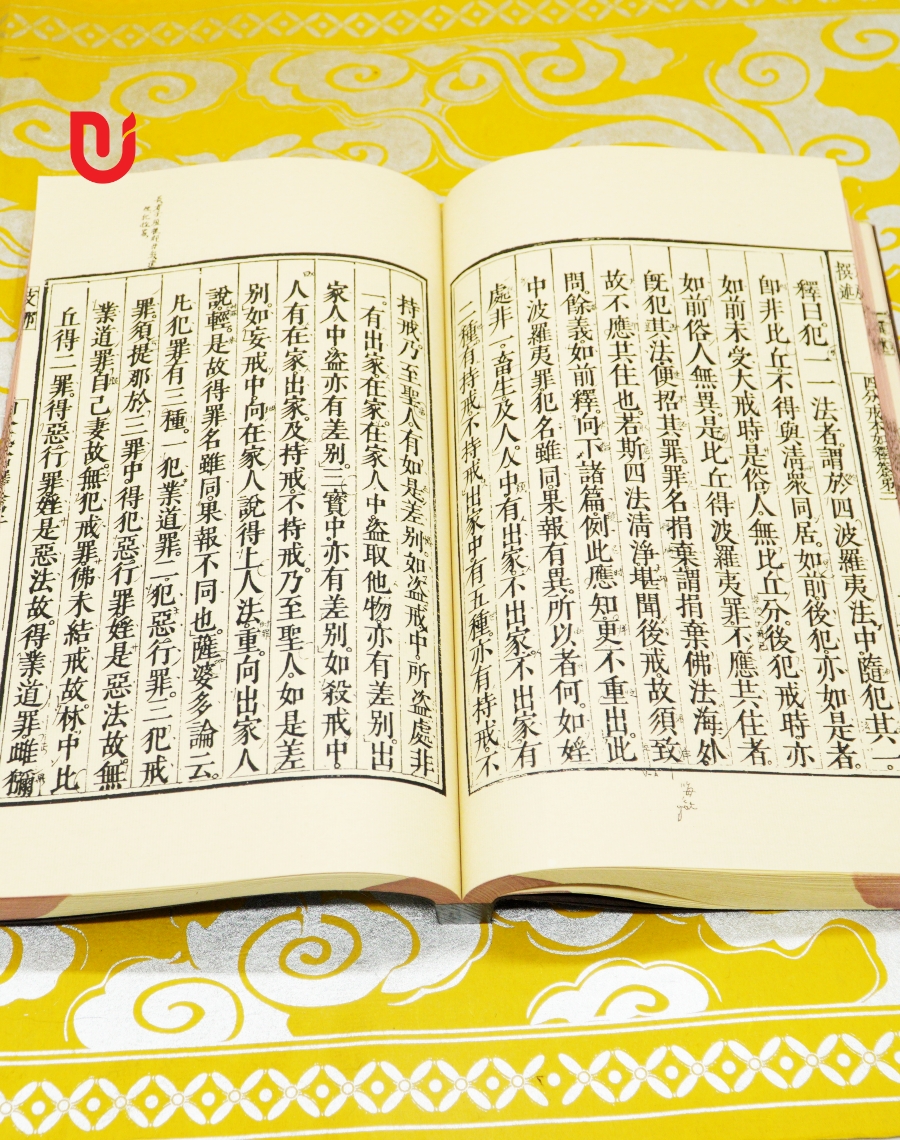 釋曰犯一一法者。謂於四波羅夷法中。隨犯其一。
卽非比丘。不得與清衆同居。如前後犯亦如是者。
如前未受大戒時。是俗人。無比丘分。後犯戒時亦
如前俗人無異。是比丘得波羅夷罪。不應共住者。
旣犯其法。便招其罪。罪名捐棄。謂捐棄佛法海外
故不應共住也。若斯四法清淨。堪聞後戒。故須致
問。餘義如前釋。向下諸篇。例此應知。更不重出。此
中波羅夷罪。犯名雖同。果報有異。所以者何。如婬
處非一。畜生及人。人中有出家不出家。不出家有
二種。有持戒不持戒。出家中有五種。亦有持戒。不
持戒。乃至聖人。有如是差别。如盗戒中。所盗處非
一。有出家在家。在家人中盗取他物。亦有差别。出
家人中盗。亦有差别。三寶中。亦有差别。如殺戒中。
人有在家出家。及持戒不持戒。乃至聖人。如是差
别。如妄戒中。向在家人說得上人法重。向出家人
說輕。是故得罪名雖同。果報不同也。薩婆多論云。
凡犯罪有三種。一犯業道罪。二犯惡行罪。三犯戒
罪。須提那於三罪中。得犯惡行罪。婬是惡法故。無
業道罪。自己妻故。無犯戒罪。佛未結戒故。林中比
丘得二罪。得惡行罪。婬是惡法故。得業道罪。雌獼
撰述